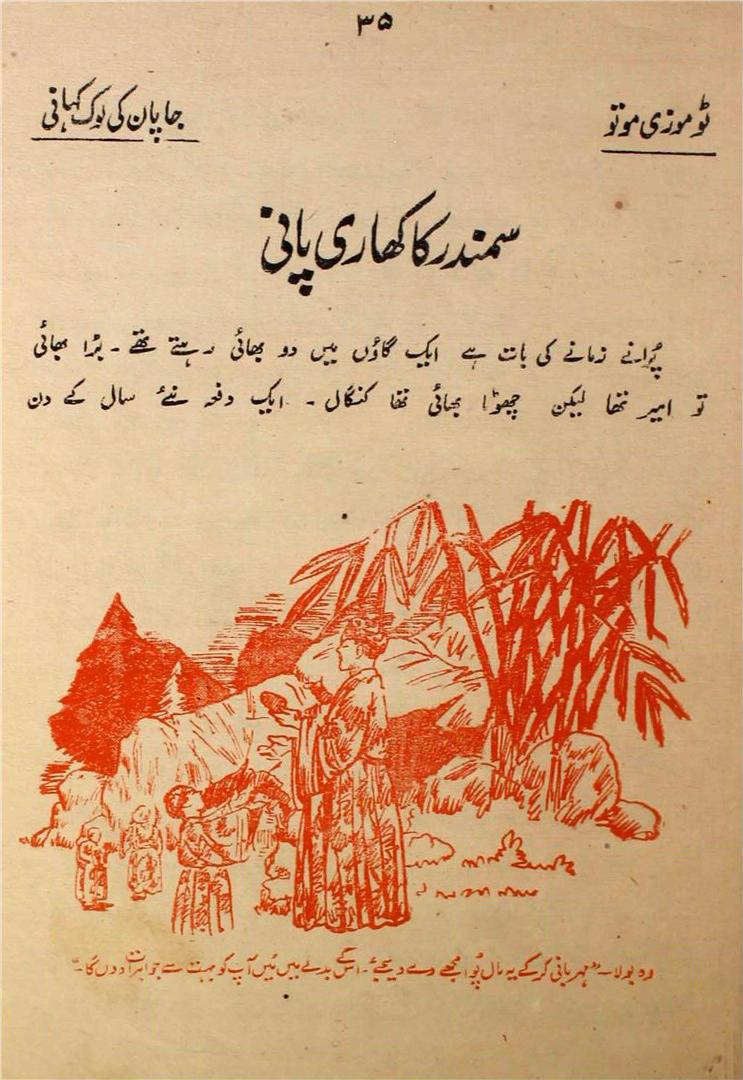 ۳۵
ٹوموزی موتو
جاپان کی لوک کہانی
سمندر کا کھاری پانی
پُرانے زمانے کی بات ہے ایک گاؤں میں دو بھائی رہتے تھے۔ بڑا بھائی
تو امیر تھا لیکن چھوٹا بھائی تھا کنگال۔ ایک دفعہ نئے سال کے دن
وہ بولا۔ "مہربانی کر کے یہ مال پُوا مجھے دے دیجئے۔ اس کے بدلے میں مَیں آپ کو بہت سے جواہرات دوں گا۔"